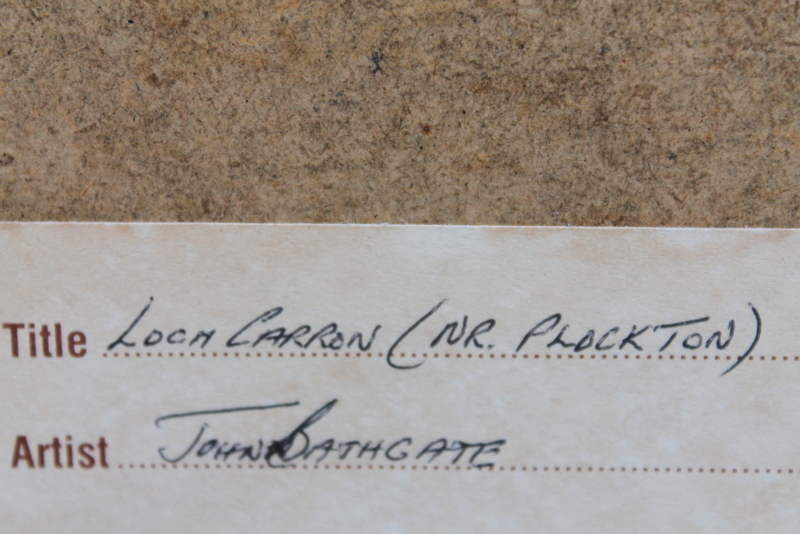 Title LOCH CARRON (NR. PLOCKTON)
Artist JOHN BATHGATE